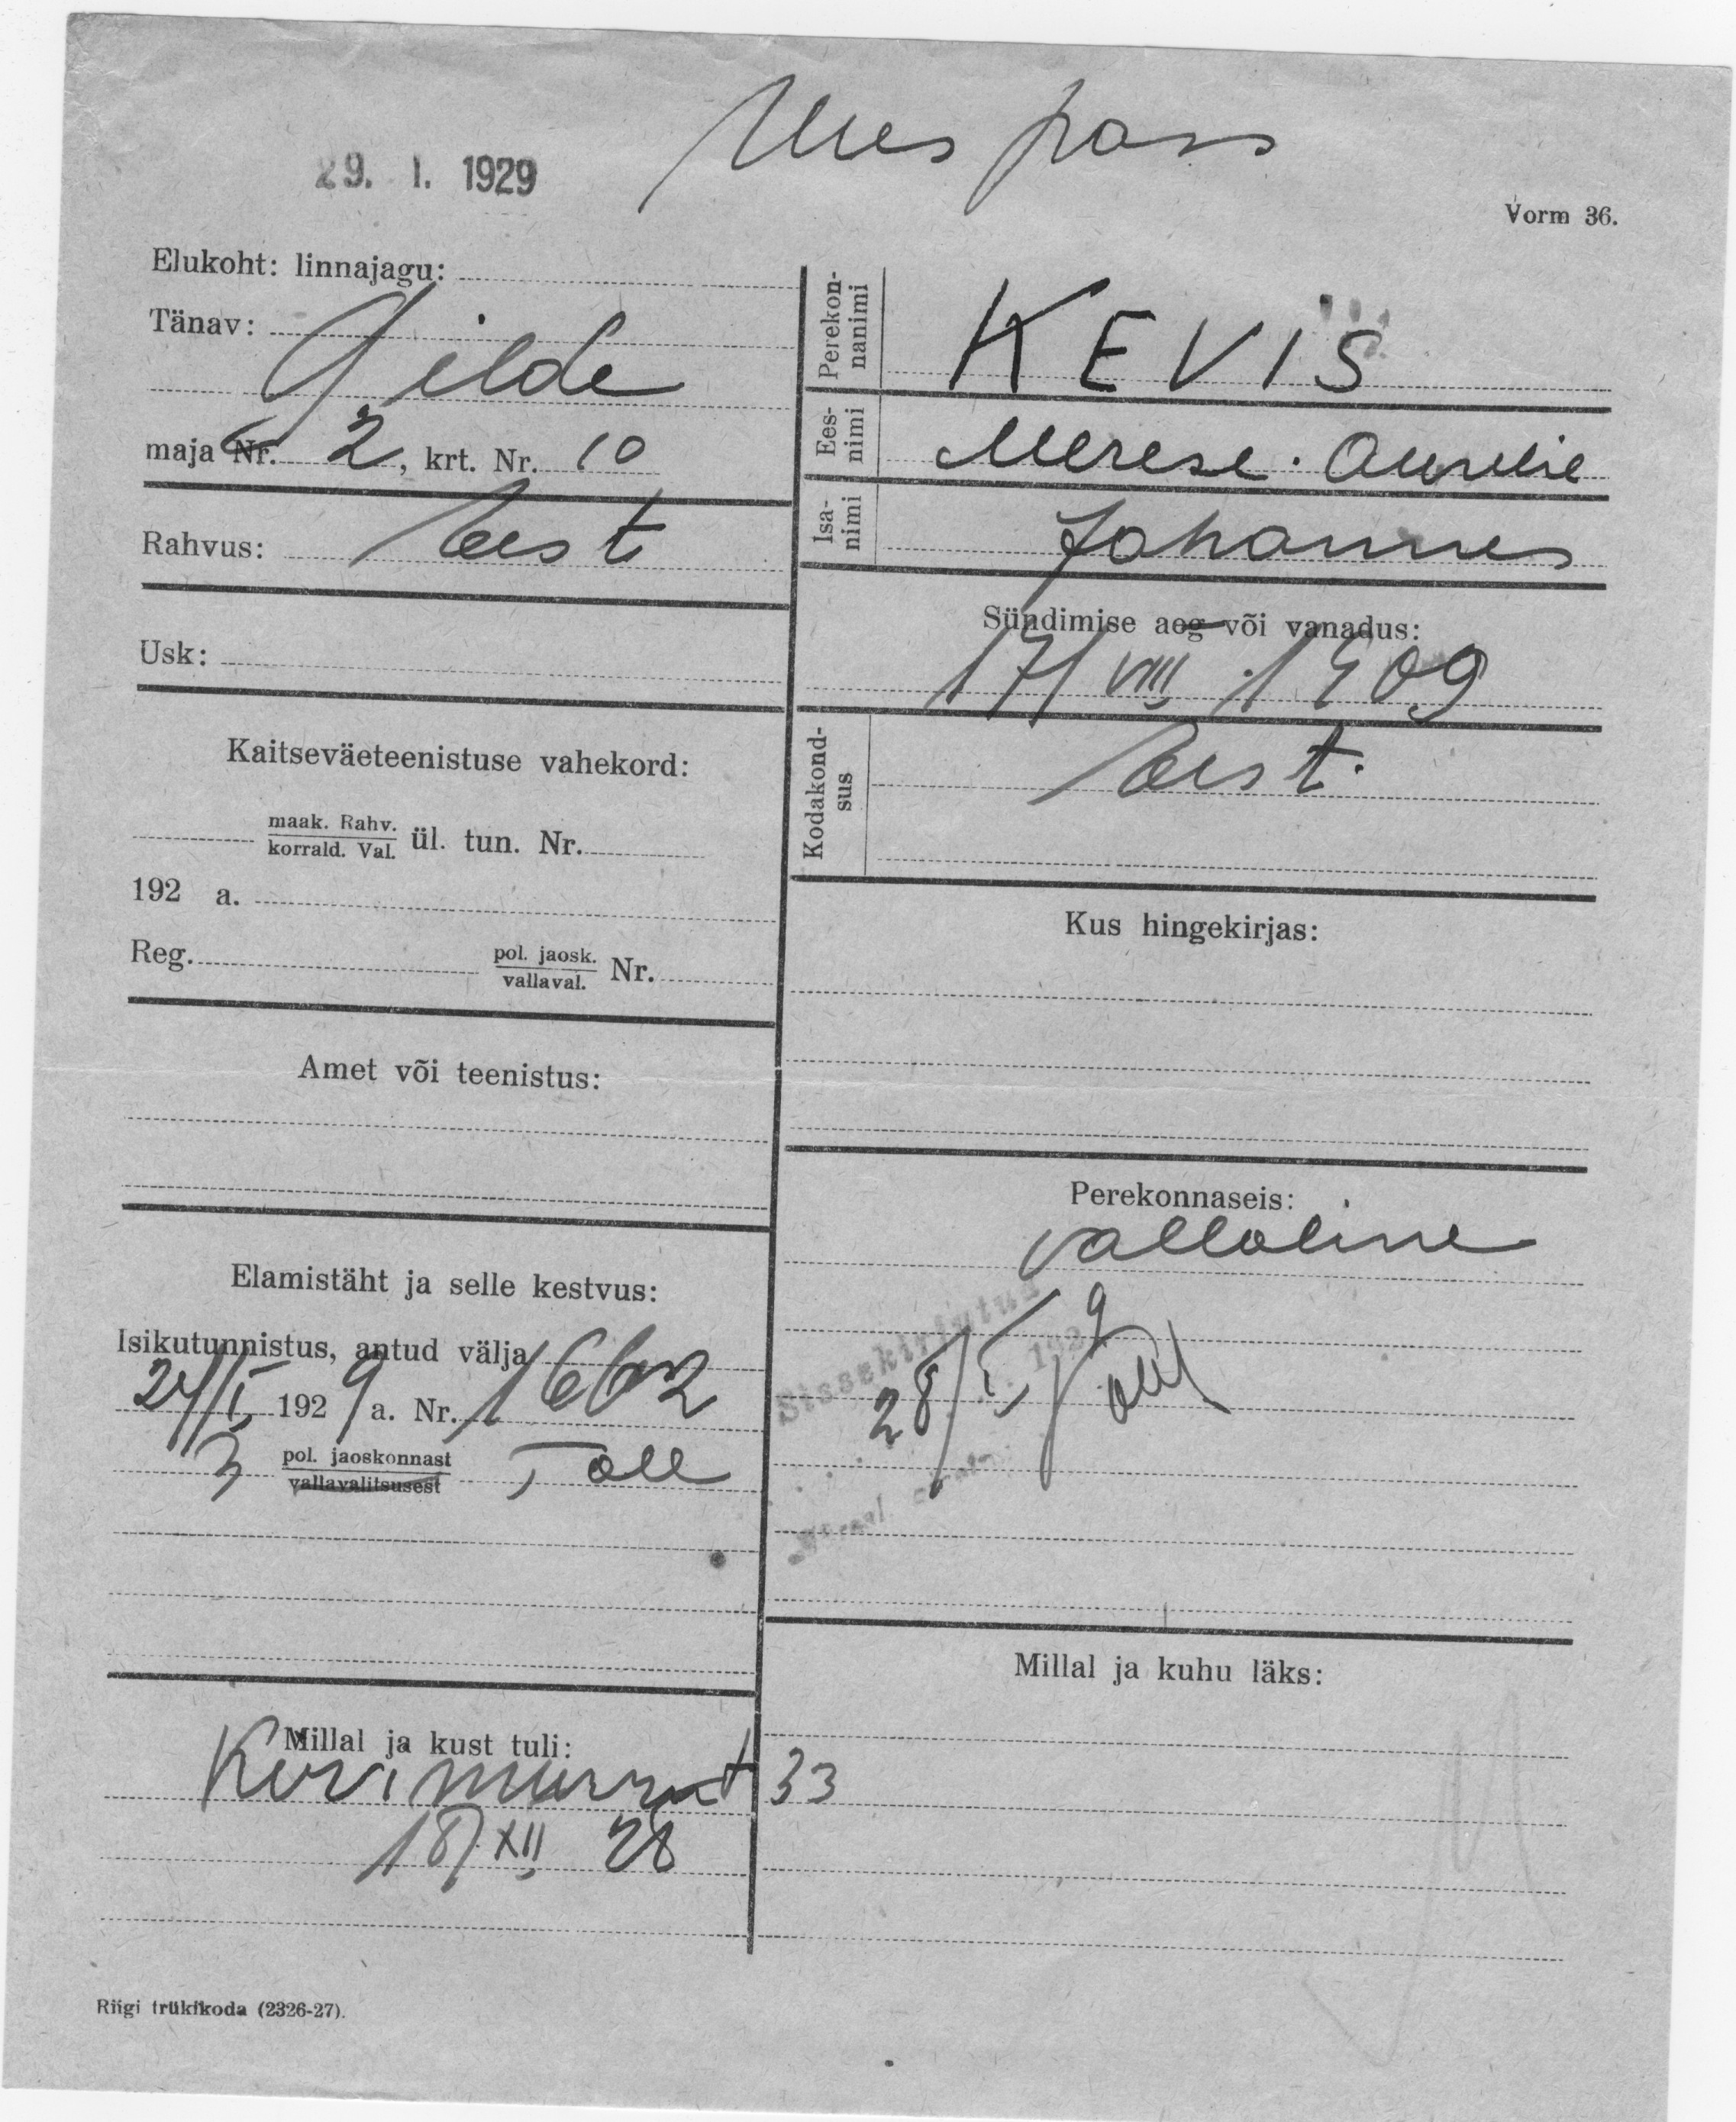 29. 1. 1929
Uus pass
Vorm 36.
Elukoht: linnajagu:
Tänav:
Gilde
maja Nr. 2, krt. Nr. 10
Rahvus: Eest
Usk:
Kaitseväeteenistuse vahekord:
maak. Rahv.
korrald. Val. ül. tun. Nr.
192 a.
Reg. pol. jaosk.
vallaval. Nr.
Amet või teenistus:
Elamistäht ja selle kestvus:
Isikutunnistus, antud välja
24/I 1929 a. Nr. 1662
3 pol. jaoskonnast Toll
vallavalitsusest
Millal ja kust tuli:
Kivimurrut 33
18/XII 28
Perekon-
nanimi KEVIS
Ees-
nimi Merese. Aurelie
Isa-
nimi Johannes
Sündimise aeg või vanadus:
17/VIII 1909
Kodakond-
sus Eest.
Kus hingekirjas:
Perekonnaseis:
vallaline
Sissekirjutud
28/I 9
192
Millal ja kuhu läks:
Riigi trükikoda (2326-27).